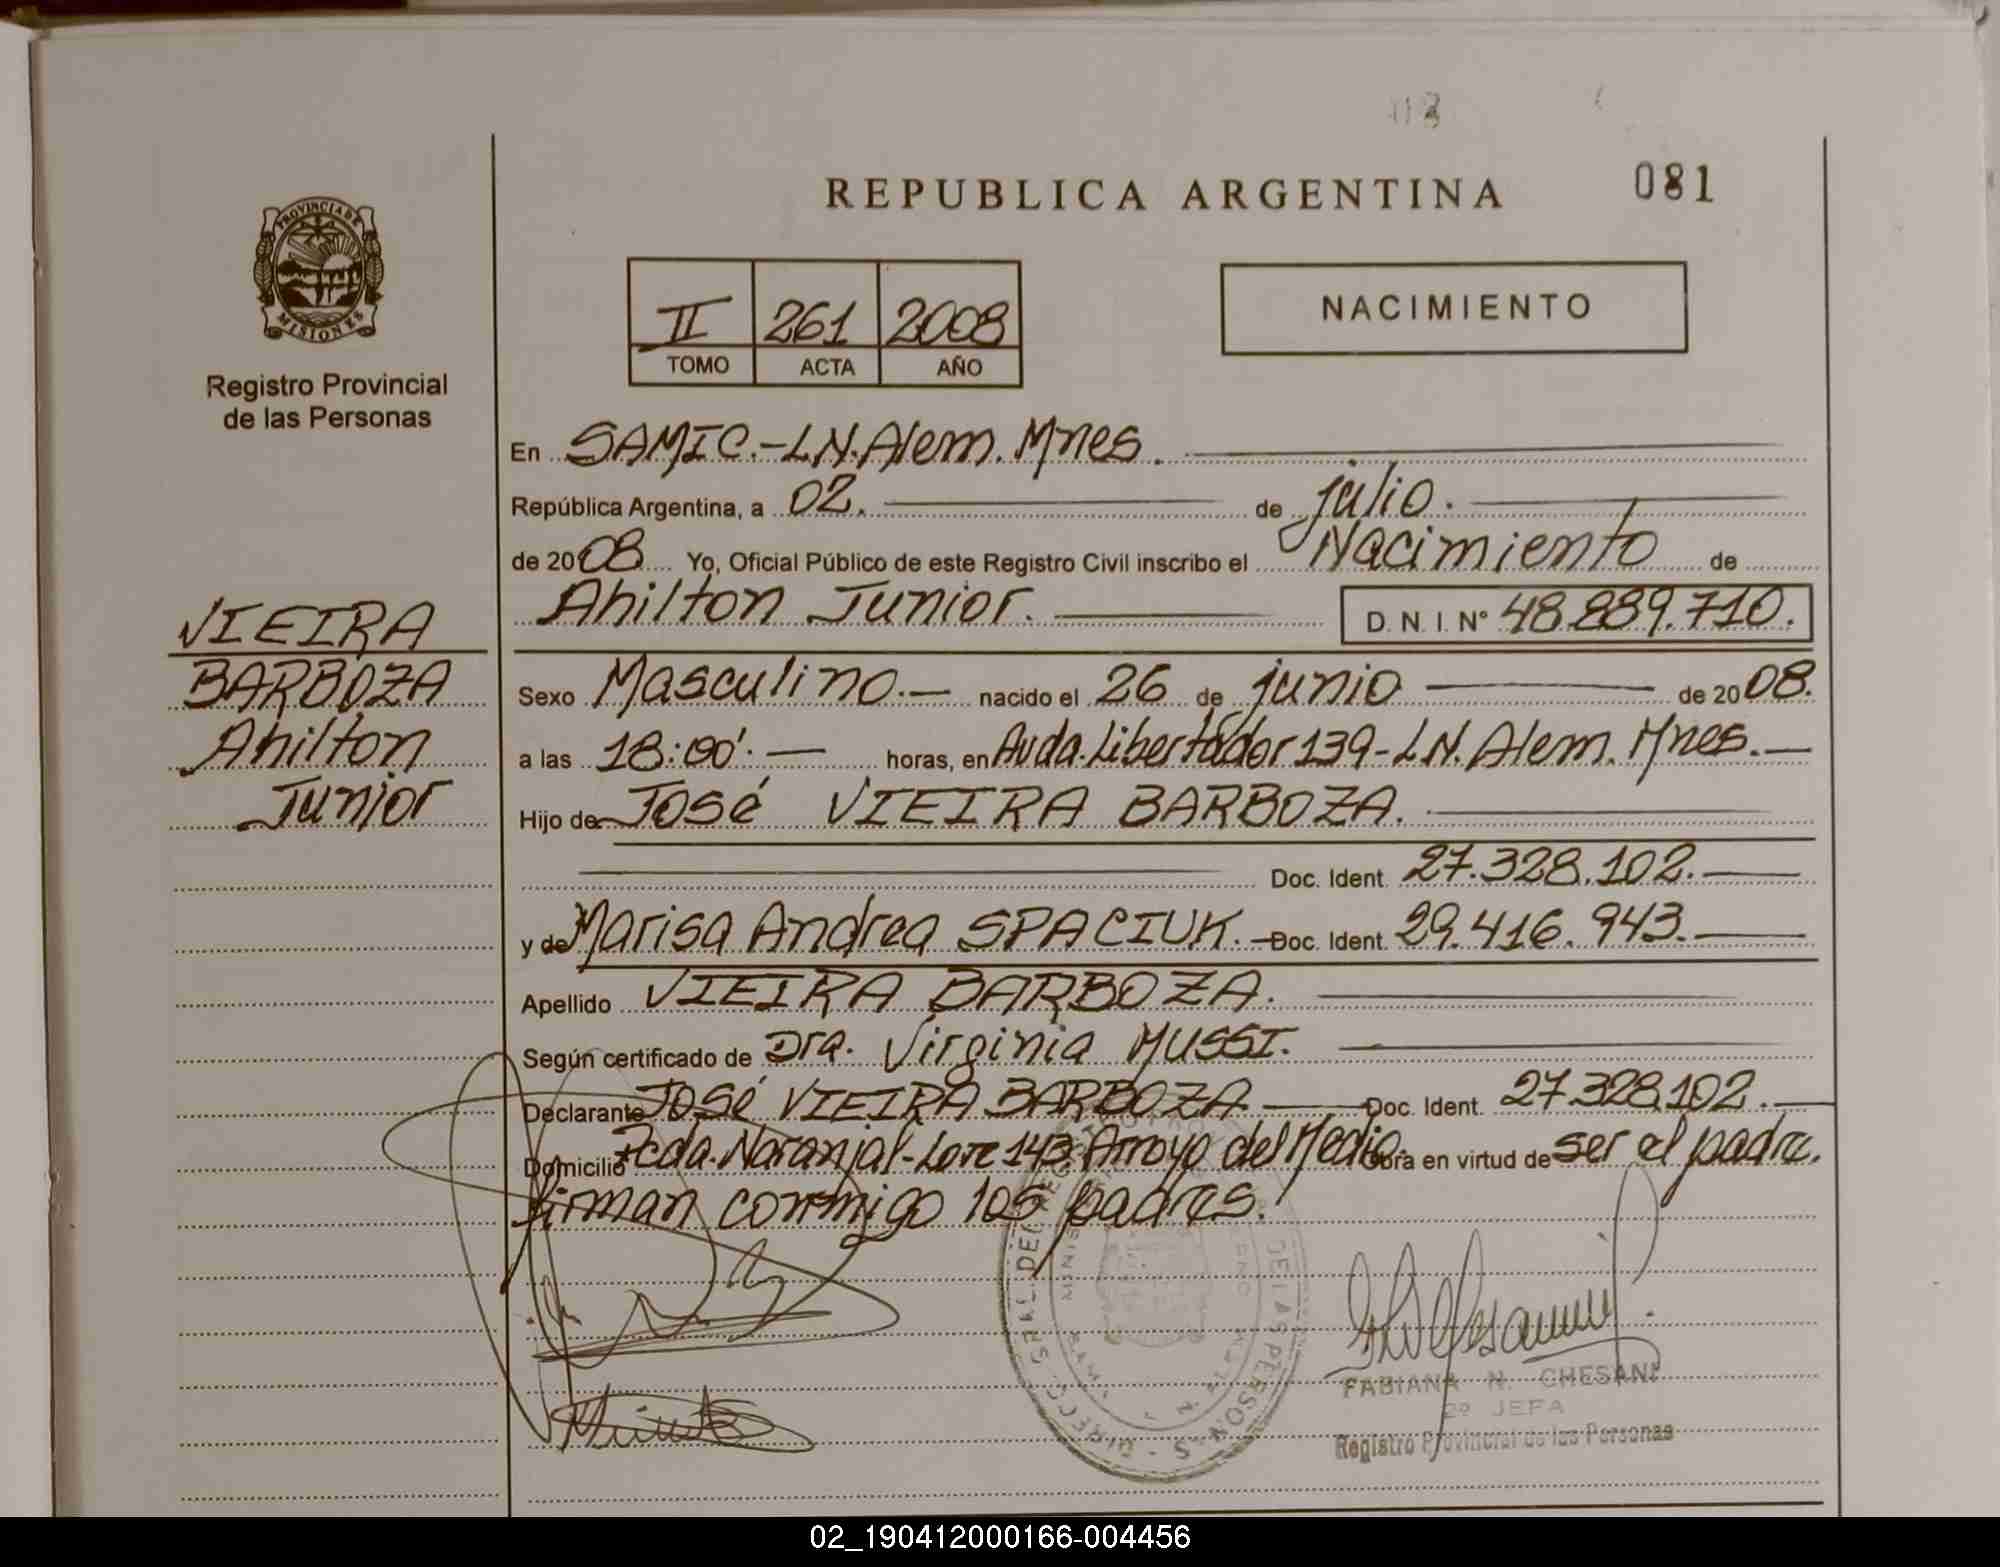 081
REPUBLICA ARGENTINA
PROVINCIA DE
MISIONES
Registro Provincial
de las Personas
II 261 2008
TOMO ACTA AÑO
NACIMIENTO
En SAMIC.-L.N.Alem. Mnes.
República Argentina, a 02. de julio.
de 2008 Yo, Oficial Público de este Registro Civil inscribo el Nacimiento de
Ahilton Junior. D. N. I. N° 48.889.710.
VIEIRA
BARBOZA
Ahilton
Junior
Sexo Masculino.- nacido el 26 de junio de 2008.
a las 18:00'.- horas, en Avda. Libertador 139-L.N. Alem. Mnes.-
Hijo de José VIEIRA BARBOZA.
Doc. Ident. 27.328.102.-
y de Marisa Andrea SPACIUK.- Doc. Ident. 29.416.943.-
Apellido VIEIRA BARBOZA.
Según certificado de Dra. Virginia MUSSI.
Declarante José VIEIRA BARBOZA Doc. Ident. 27.328.102.-
Domicilio Pcda. Naranjal-Lote 143 Arroyo del Medio. Obra en virtud de ser el padre.
firman conmigo los padres.
FABIANA N. CHESANI
2º JEFA
Registro Provincial de las Personas
02_190412000166-004456